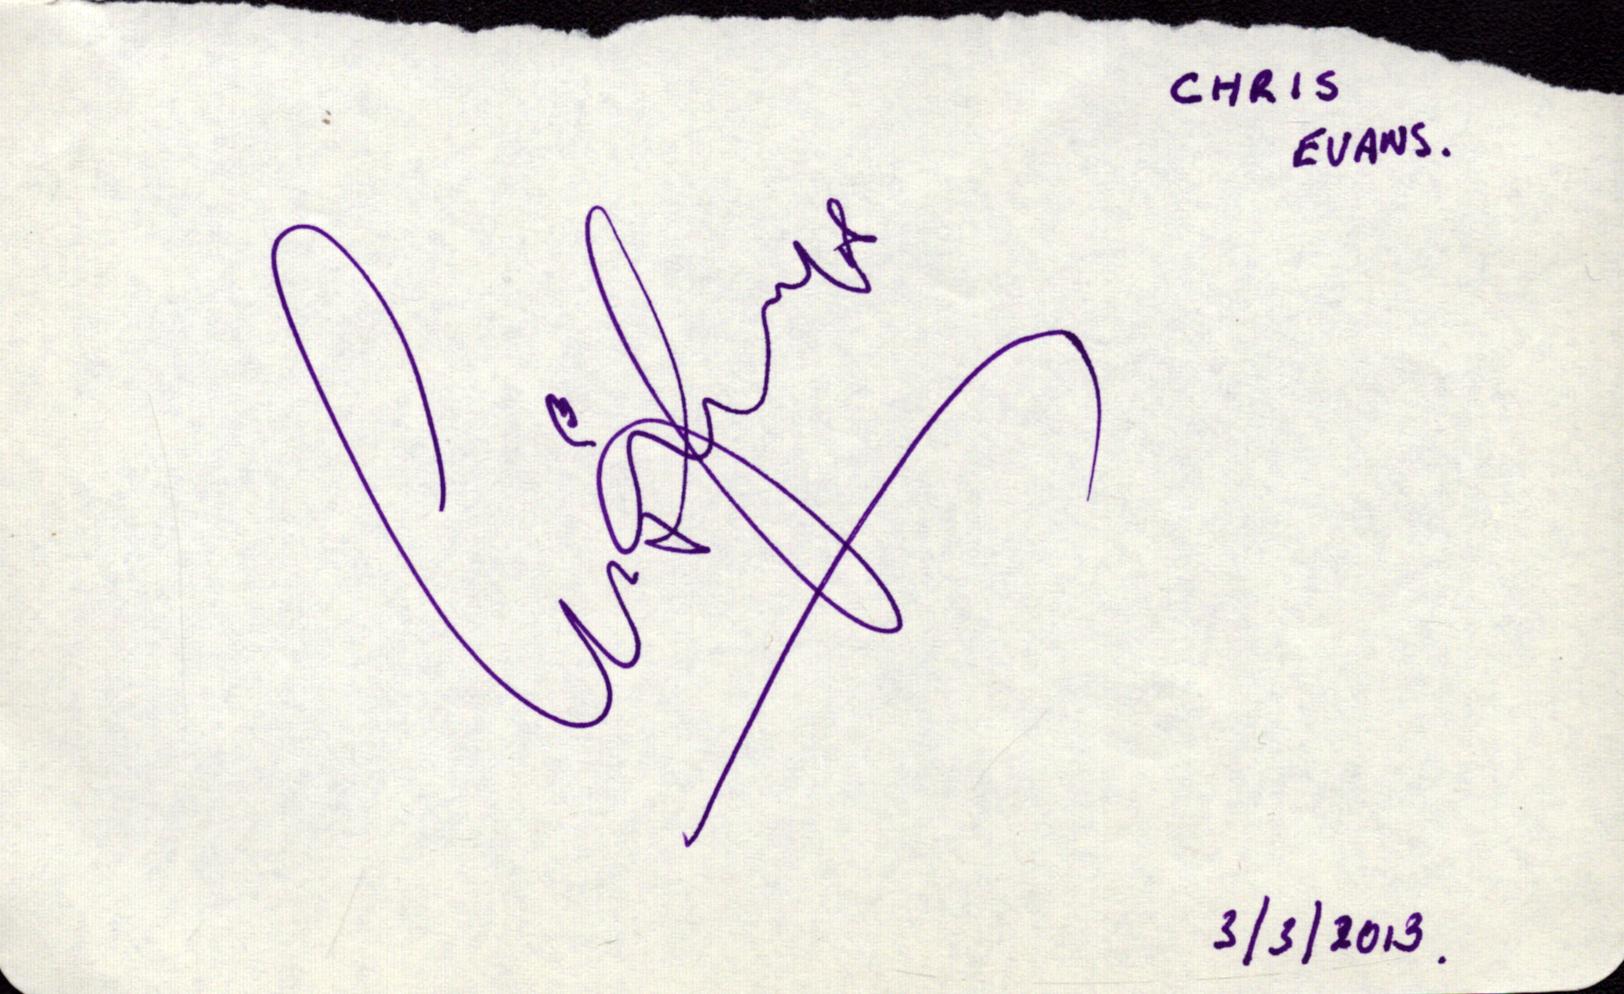 CHRIS
EVANS.
3/3/2013.